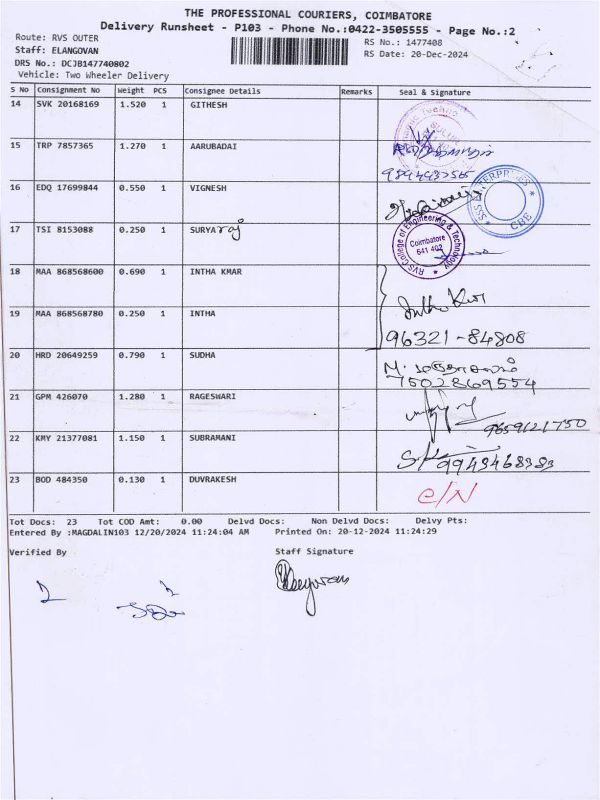 THE PROFESSIONAL COURIERS, COIMBATORE
Delivery Runsheet - P103 - Phone No.:0422-3505555 - Page No.:2
Route: RVS OUTER
RS No.: 1477408
Staff: ELANGOVAN
RS Date: 20-Dec-2024
DRS No.: DCJB147740802
Vehicle: Two Wheeler Delivery
S No Consignment No Weight PCS Consignee Details Remarks Seal & Signature
14 SVK 20168169 1.520 1 GITHESH
15 TRP 7857365 1.270 1 AARUBADAI
16 EDQ 17699844 0.550 1 VIGNESH
SSS ENTERPRISES * CBE *
17 TSI 8153088 0.250 1 SURYA raj
RVS College of Engineering & Technology
Coimbatore
641 402
18 MAA 868568600 0.690 1 INTHA KMAR
19 MAA 868568780 0.250 1 INTHA
96321-84808
20 HRD 20649259 0.790 1 SUDHA
7502869554
21 GPM 426070 1.280 1 RAGESWARI
9659121750
22 KMY 21377081 1.150 1 SUBRAMANI
9943468383
23 BOD 484350 0.130 1 DUVRAKESH
C/N
Tot Docs: 23 Tot COD Amt: 0.00 Delvd Docs: Non Delvd Docs: Delvy Pts:
Entered By :MAGDALIN103 12/20/2024 11:24:04 AM Printed On: 20-12-2024 11:24:29
Verified By Staff Signature